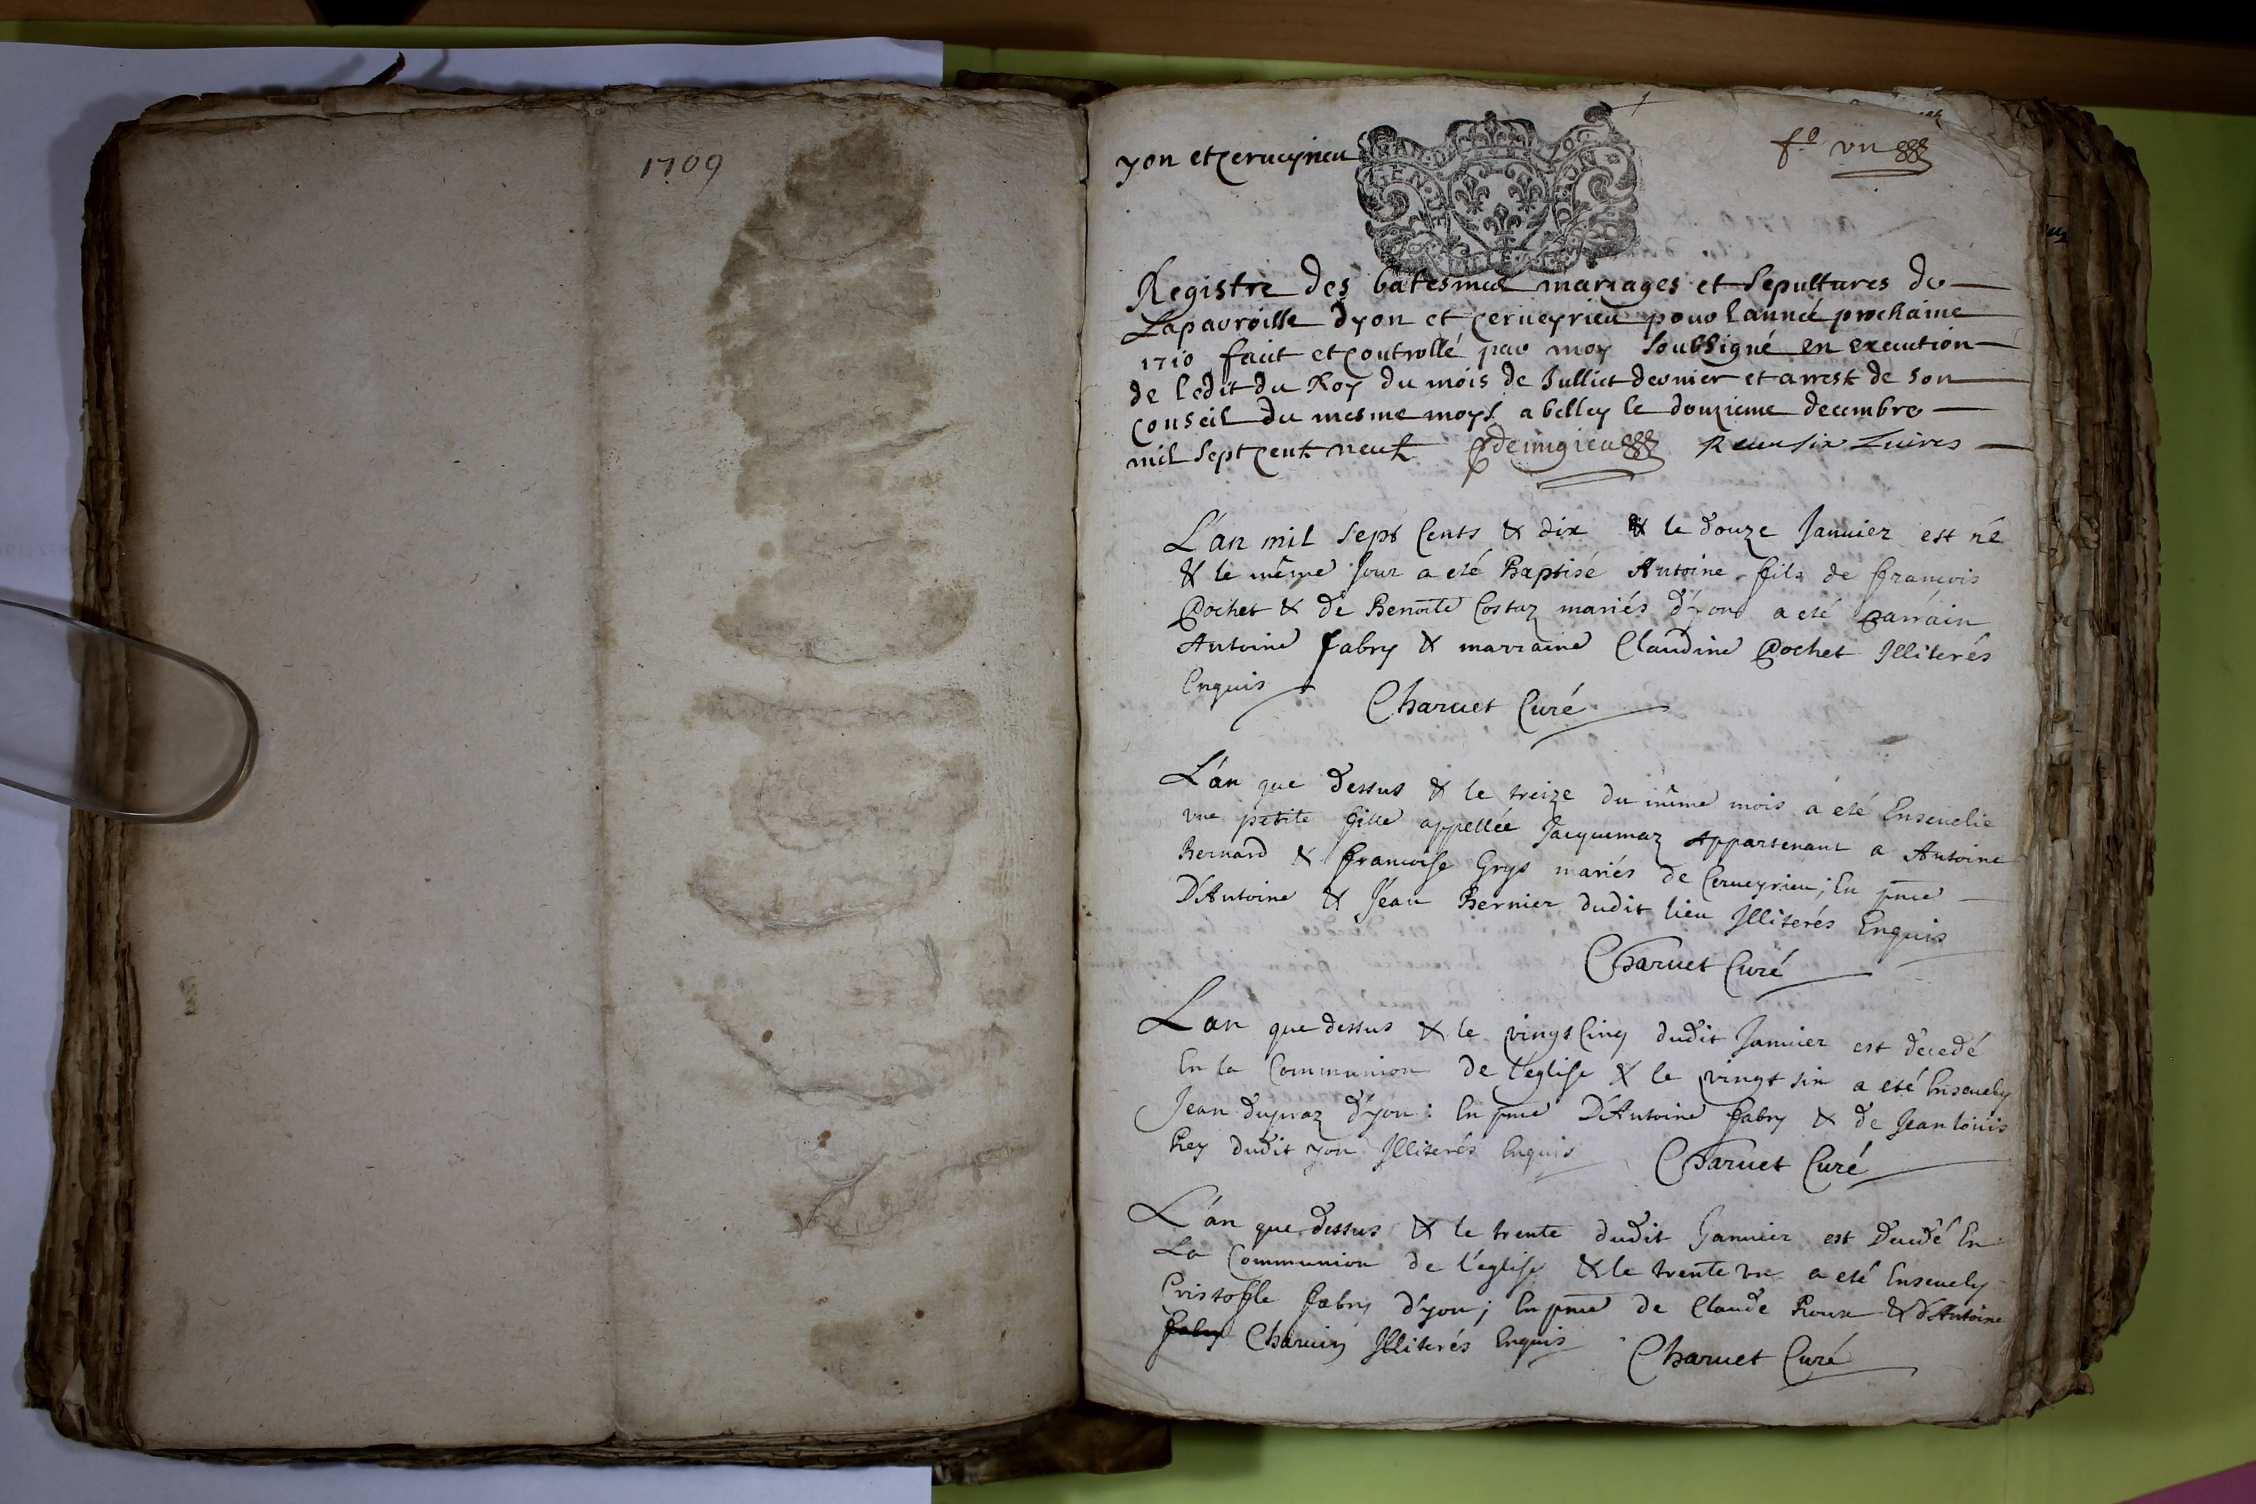 1709
yon et cerueyrieu
f.o vn
Registre des batesmes mariages et sepultures de
Laparroisse dyon et cerueyrieu pour lannée prochaine
1710 fait et controllé par moy soubsigné en execution
de ledit du Roy du mois de Julliet dernier et arrest de son
conseil du mesme moys a belley le douzieme decembre
mil sept cent neuf Receu six Liures
L'an mil sept cents & dix & le douze Januier est né
& le même Jour a eté Baptisé Antoine fils de francois
Pochet & de Benoîte Costaz mariés d'yon a eté parrain
Antoine fabry & marraine Claudine Pochet Illiterés
Enquis Charuet Curé
L'an que dessus & le treize du même mois a été Enseuelie
vne petite fille appellée Jacquemaz appartenant a Antoine
Bernard & francoise Grys mariés de Cerueyrieu; En pnce
D'Antoine & Jean Bernier dudit lieu Illiterés Enquis
Charuet Curé
L'an que dessus & le vingt Cinq dudit Januier est decedé
En la Communion de l'eglise & le vingt six a eté Enseuely
Jean dupraz d'yon: En pnce D'Antoine fabry & de Jean louis
Rey dudit yon Illiterés Enquis Charuet Curé
L'an que dessus & le trente dudit Januier est Decedé En
La Communion de l'eglise & le trente vn a eté Enseuely
Cristofle fabry d'yon; En pnce de Claude Roux & d'Antoine
fabry Charuin Illiterés Enquis Charuet Curé